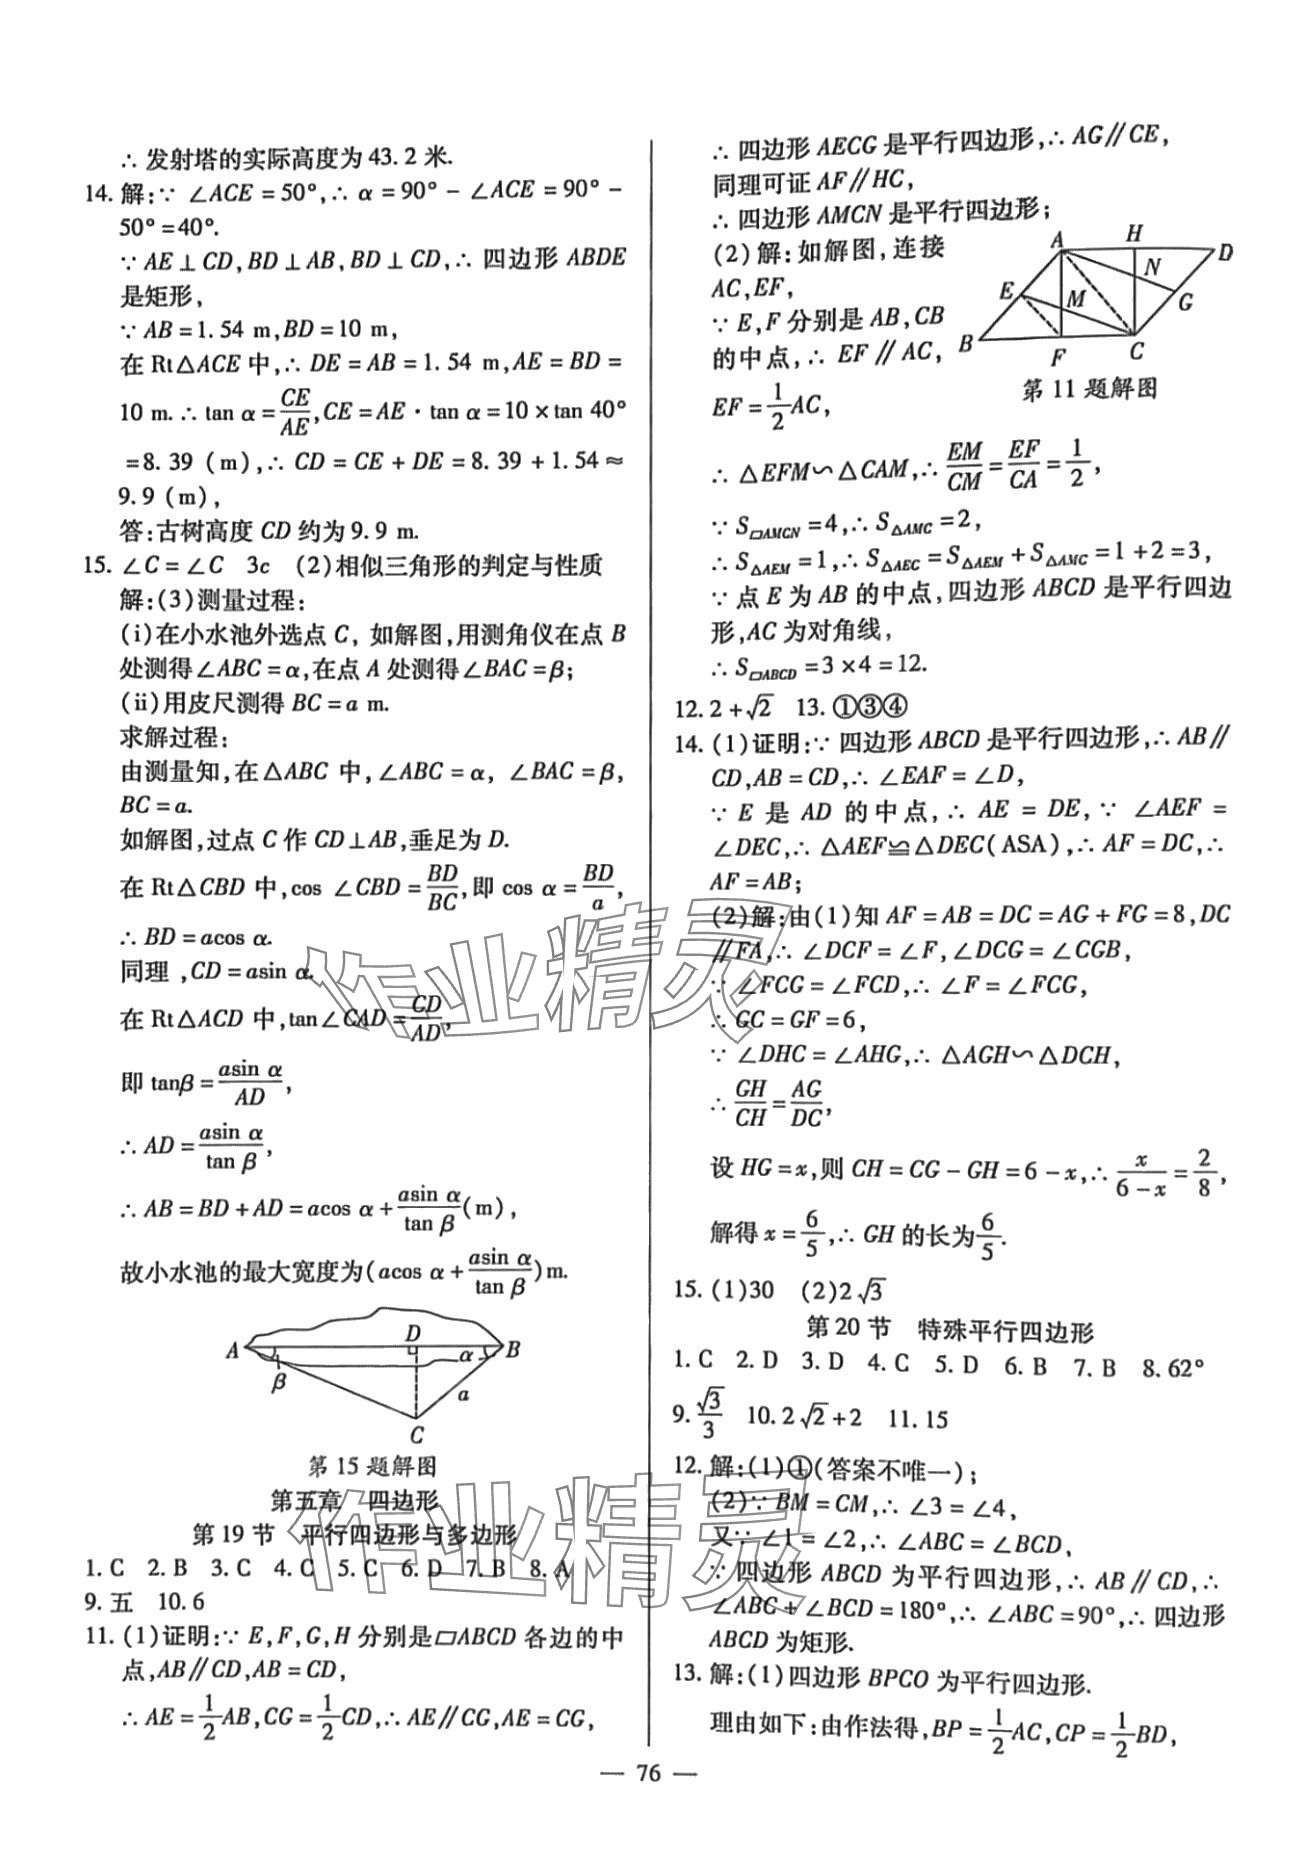 ∴ 发射塔的实际高度为 43.2 米.
14. 解:∵ ∠ACE=50°,∴ α=90°-∠ACE=90°-
50°=40°.
∵ AE⊥CD,BD⊥AB,BD⊥CD,∴ 四边形 ABDE
是矩形,
∵ AB=1.54 m,BD=10 m,
在 Rt△ACE 中,∴ DE=AB=1.54 m,AE=BD=
10 m.∴ tan α=CE/AE,CE=AE·tan α=10×tan 40°
=8.39 (m),∴ CD=CE+DE=8.39+1.54≈
9.9 (m),
答:古树高度 CD 约为 9.9 m.
15. ∠C=∠C 3c (2)相似三角形的判定与性质
解:(3)测量过程:
(ⅰ)在小水池外选点 C, 如解图,用测角仪在点 B
处测得∠ABC=α,在点 A 处测得∠BAC=β;
(ⅱ)用皮尺测得 BC=a m.
求解过程:
由测量知,在△ABC 中,∠ABC=α, ∠BAC=β,
BC=a.
如解图,过点 C 作 CD⊥AB,垂足为 D.
在 Rt△CBD 中,cos ∠CBD=BD/BC,即 cos α=BD/a,
∴ BD=acos α.
同理 ,CD=asin α.
在 Rt△ACD 中,tan∠CAD=CD/AD,
即 tanβ=asin α/AD,
∴ AD=asin α/tan β,
∴ AB=BD+AD=acos α+asin α/tan β(m),
故小水池的最大宽度为(acos α+asin α/tan β)m.
A D B
α
β a
C
第 15 题解图
第五章 四边形
第 19 节 平行四边形与多边形
1. C 2. B 3. C 4. C 5. C 6. D 7. B 8. A
9. 五 10. 6
11. (1)证明:∵ E,F,G,H 分别是▱ABCD 各边的中
点,AB∥CD,AB=CD,
∴ AE=1/2AB,CG=1/2CD,∴ AE∥CG,AE=CG,
∴ 四边形 AECG 是平行四边形,∴ AG∥CE,
同理可证 AF∥HC,
∴ 四边形 AMCN 是平行四边形;
(2)解:如解图,连接
AC,EF,
∵ E,F 分别是 AB,CB
的中点,∴ EF∥AC,
EF=1/2AC,
A H D
N
E M G
B F C
第 11 题解图
∴ △EFM∽△CAM,∴ EM/CM=EF/CA=1/2,
∵ S▱AMCN=4,∴ S△AMC=2,
∴ S△AEM=1,∴ S△AEC=S△AEM+S△AMC=1+2=3,
∵ 点 E 为 AB 的中点,四边形 ABCD 是平行四边
形,AC 为对角线,
∴ S▱ABCD=3×4=12.
12. 2+√2 13. ①③④
14. (1)证明:∵ 四边形 ABCD 是平行四边形,∴ AB∥
CD,AB=CD,∴ ∠EAF=∠D,
∵ E 是 AD 的中点,∴ AE=DE,∵ ∠AEF=
∠DEC,∴ △AEF≌△DEC(ASA),∴ AF=DC,∴
AF=AB;
(2)解:由(1)知 AF=AB=DC=AG+FG=8,DC
∥FA,∴ ∠DCF=∠F,∠DCG=∠CGB,
∵ ∠FCG=∠FCD,∴ ∠F=∠FCG,
∴ GC=GF=6,
∵ ∠DHC=∠AHG,∴ △AGH∽△DCH,
∴ GH/CH=AG/DC,
设 HG=x,则 CH=CG-GH=6-x,∴ x/6-x=2/8,
解得 x=6/5,∴ GH 的长为6/5.
15. (1)30 (2)2√3
第 20 节 特殊平行四边形
1. C 2. D 3. D 4. C 5. D 6. B 7. B 8. 62°
9. √3/3 10. 2√2+2 11. 15
12. 解:(1)①(答案不唯一);
(2)∵ BM=CM,∴ ∠3=∠4,
又∵ ∠1=∠2,∴ ∠ABC=∠BCD,
∵ 四边形 ABCD 为平行四边形,∴ AB∥CD,∴
∠ABC+∠BCD=180°,∴ ∠ABC=90°,∴ 四边形
ABCD 为矩形.
13. 解:(1)四边形 BPCO 为平行四边形.
理由如下:由作法得,BP=1/2AC,CP=1/2BD,
— 76 —
作业精灵
作业精灵